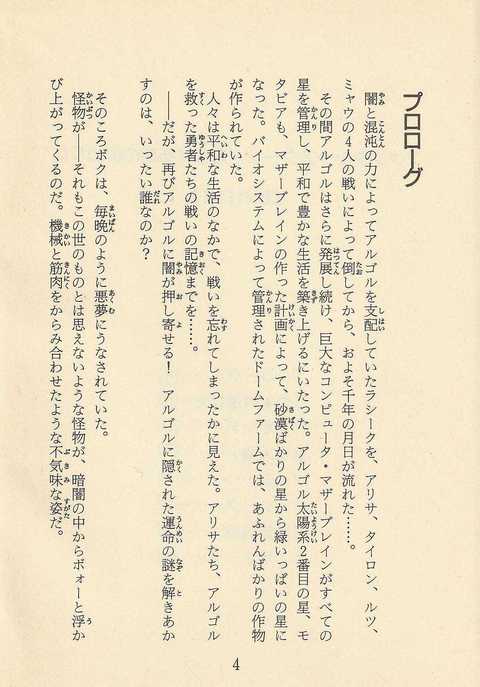 プロローグ
闇と混沌の力によってアルゴルを支配していたラシークを、アリサ、タイロン、ルツ、
ミャウの4人の戦いによって倒してから、およそ千年の月日が流れた……。
その間アルゴルはさらに発展し続け、巨大なコンピュータ・マザーブレインがすべての
星を管理し、平和で豊かな生活を築き上げるにいたった。アルゴル太陽系2番目の星、モ
タビアも、マザーブレインの作った計画によって、砂漠ばかりの星から緑いっぱいの星に
なった。バイオシステムによって管理されたドームファームでは、あふれんばかりの作物
が作られていた。
人々は平和な生活のなかで、戦いを忘れてしまったかに見えた。アリサたち、アルゴル
を救った勇者たちの戦いの記憶までを……。
――だが、再びアルゴルに闇が押し寄せる！　アルゴルに隠された運命の謎を解きあか
すのは、いったい誰なのか？
そのころボクは、毎晩のように悪夢にうなされていた。
怪物が――それもこの世のものとは思えないような怪物が、暗闇の中からボォーと浮か
び上がってくるのだ。機械と筋肉をからみ合わせたような不気味な姿だ。
4